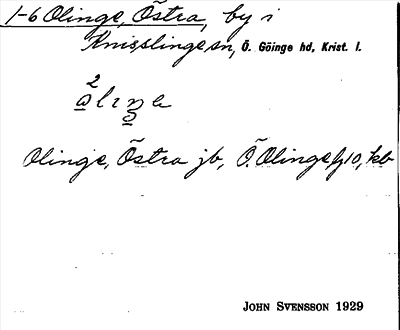 1-6 Olinge, Östra, by i
Knisslinge sn, Ö. Göinge hd, Krist. l.
Olinge, Östra jb, Ö. Olinge
JOHN SVENSSON 1929